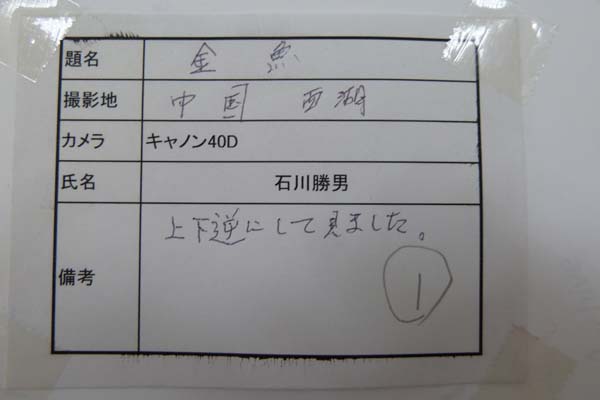 題名 金魚
撮影地 中国 西湖
カメラ キャノン40D
氏名 石川勝男
備考 上下逆にして見ました。
1